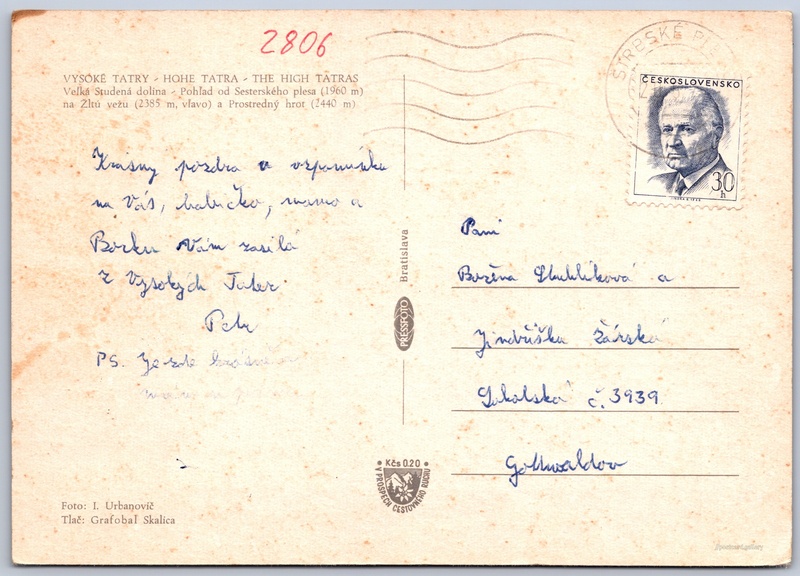 2806
VYSOKÉ TATRY - HOHE TATRA - THE HIGH TATRAS
Veľká Studená dolina - Pohľad od Sesterského plesa (1960 m)
na Žltú vežu (2385 m, vľavo) a Prostredný hrot (2440 m)
ŠTRBSKÉ
ČESKOSLOVENSKO
30
h
Krásný pozdra v vzpomínku
na Vás, babičko, mamo a
Vám zasílá
z Vysokých Tater
Petr
PS. Je zde
Bratislava
PRESSFOTO
Paní
Božena a
Jindřiška Žárská
Sokolská č. 3939
Gottwaldov
Kčs 0.20
V PROSPECH CESTOVNÉHO RUCHU
Foto: I. Urbanovič
Tlač: Grafobal Skalica